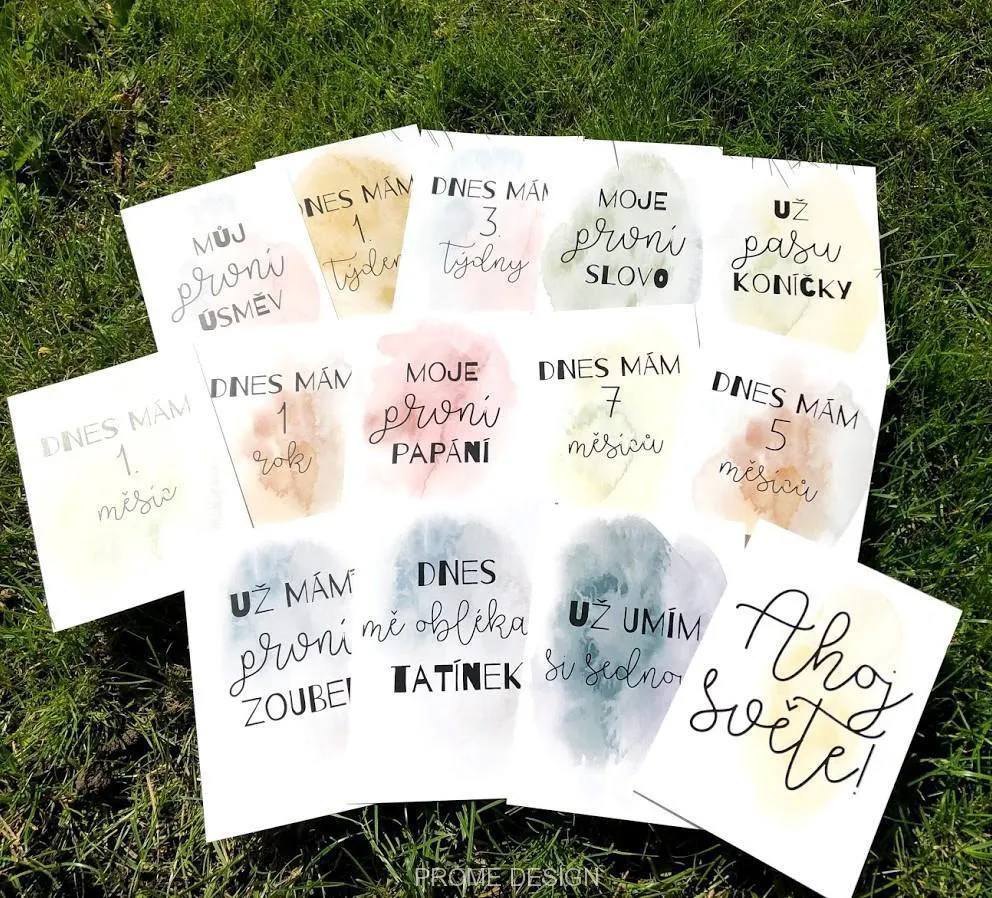 MŮJ
první
ÚSMĚV
DNES MÁM
1.
týden
DNES MÁM
3.
týdny
MOJE
první
SLOVO
UŽ
pasu
KONÍČKY
DNES MÁM
1.
měsíc
DNES MÁM
1
rok
MOJE
první
PAPÁNÍ
DNES MÁM
7
měsíců
DNES MÁM
5
měsíců
UŽ MÁM
první
ZOUBE
DNES
mě obléká
TATÍNEK
UŽ UMÍM
si sedno
Ahoj
světe!
PROME DESIGN